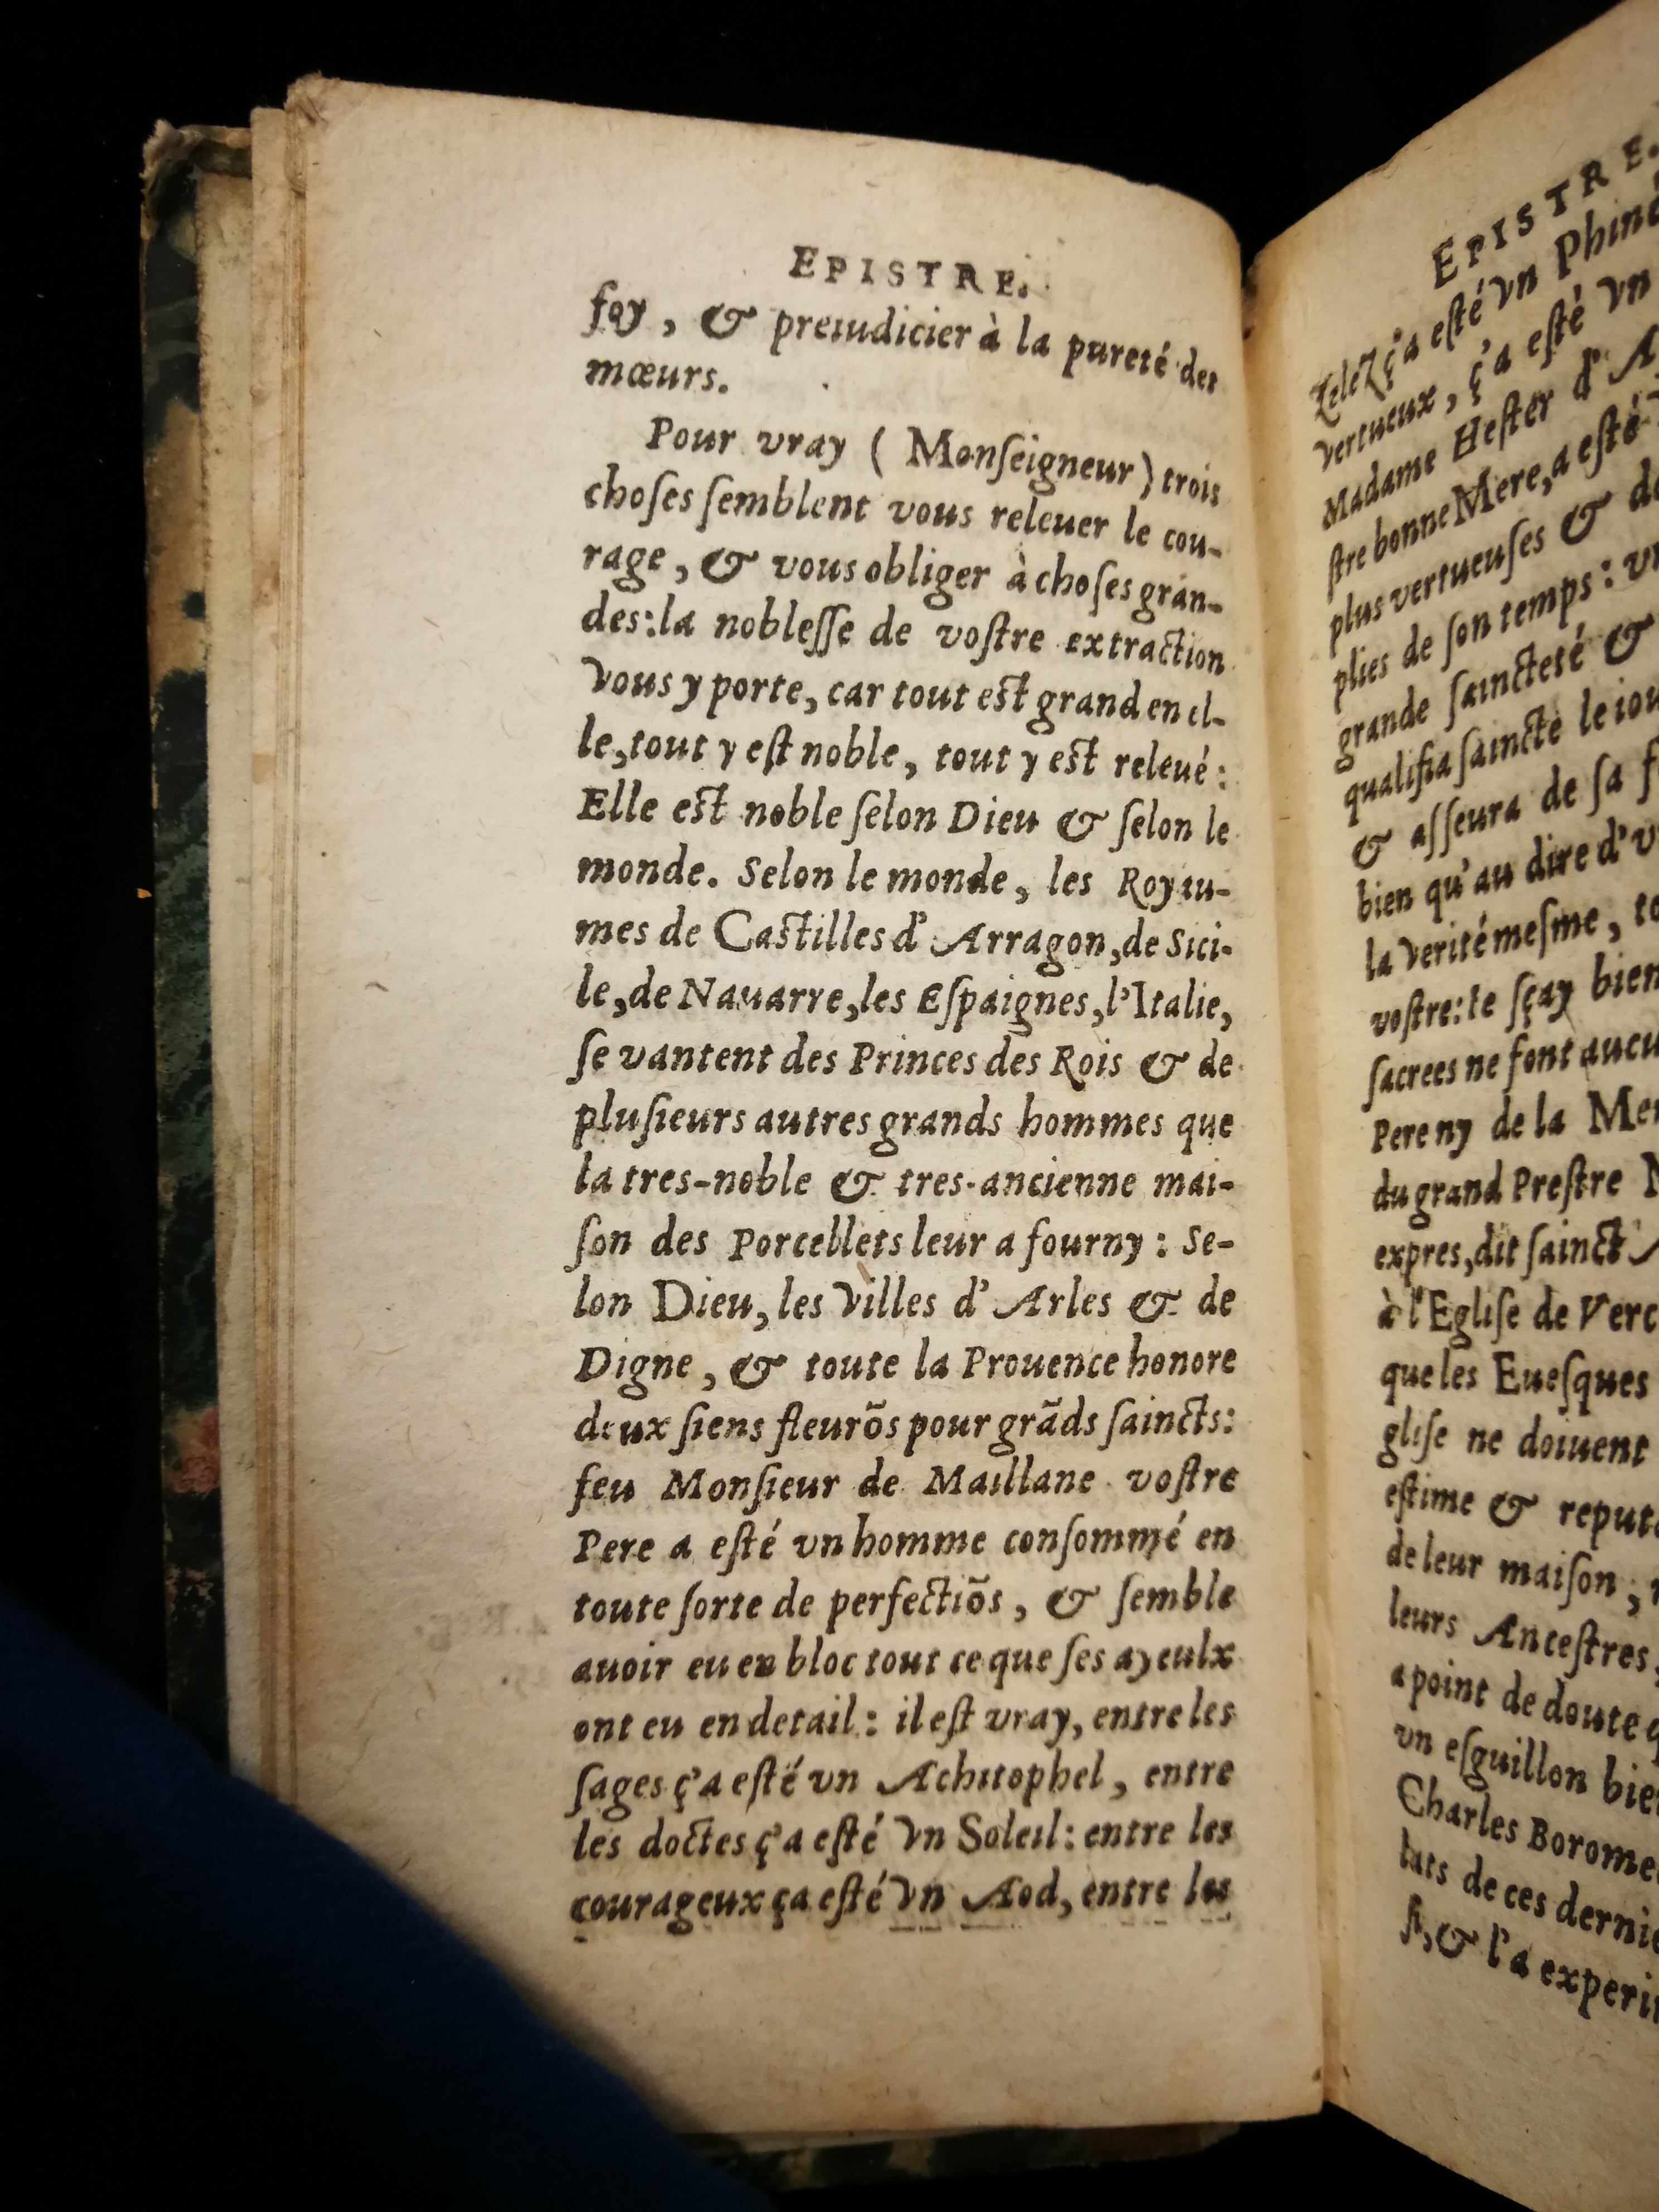 EPISTRE.
foy, & preiudicier à la pureté des
mœurs.
Pour vray ( Monſeigneur ) trois
choſes ſemblent vous releuer le cou-
rage, & vous obliger à choſes gran-
des: la nobleſſe de voſtre extraction
vous y porte, car tout eſt grand en el-
le, tout y eſt noble, tout y eſt releué:
Elle eſt noble ſelon Dieu & ſelon le
monde. Selon le monde, les Royau-
mes de Caſtilles d'Arragon, de Sici-
le, de Nauarre, les Eſpaignes, l'Italie,
ſe vantent des Princes des Rois & de
pluſieurs autres grands hommes que
la tres-noble & tres-ancienne mai-
ſon des Porcellets leur a fourny : Se-
lon Dieu, les Villes d'Arles & de
Digne, & toute la Prouence honore
deux ſiens fleurõs pour grãds ſaincts:
feu Monſieur de Maillane voſtre
Pere a eſté vn homme conſommé en
toute ſorte de perfectiõs, & ſemble
auoir eu en bloc tout ce que ſes ayeulx
ont eu en detail : il eſt vray, entre les
ſages ç'a eſté vn Achitophel, entre
les doctes ç'a eſté vn Soleil: entre les
courageux ça eſté vn Aod, entre les
EPISTRE.
Zelez ç'a eſté vn
vertueux, ç'a eſté vn
Madame Heſter d'
ſtre bonne Mere, a eſté
plus vertueuſes &
plies de ſon temps:
grande ſaincteté &
qualifia ſaincte le
& aſſeura de ſa
bien qu'au dire
la verité meſme,
voſtre: Ie ſçay bien
ſacrees ne font
Pere ny de la
du grand Preſtre
expres, dit ſainct
à l'Egliſe de
que les Eueſques
gliſe ne doiuent
eſtime &
de leur maiſon,
leurs Anceſtres,
a point de doute
vn eſguillon
Charles
de ces
& l'a